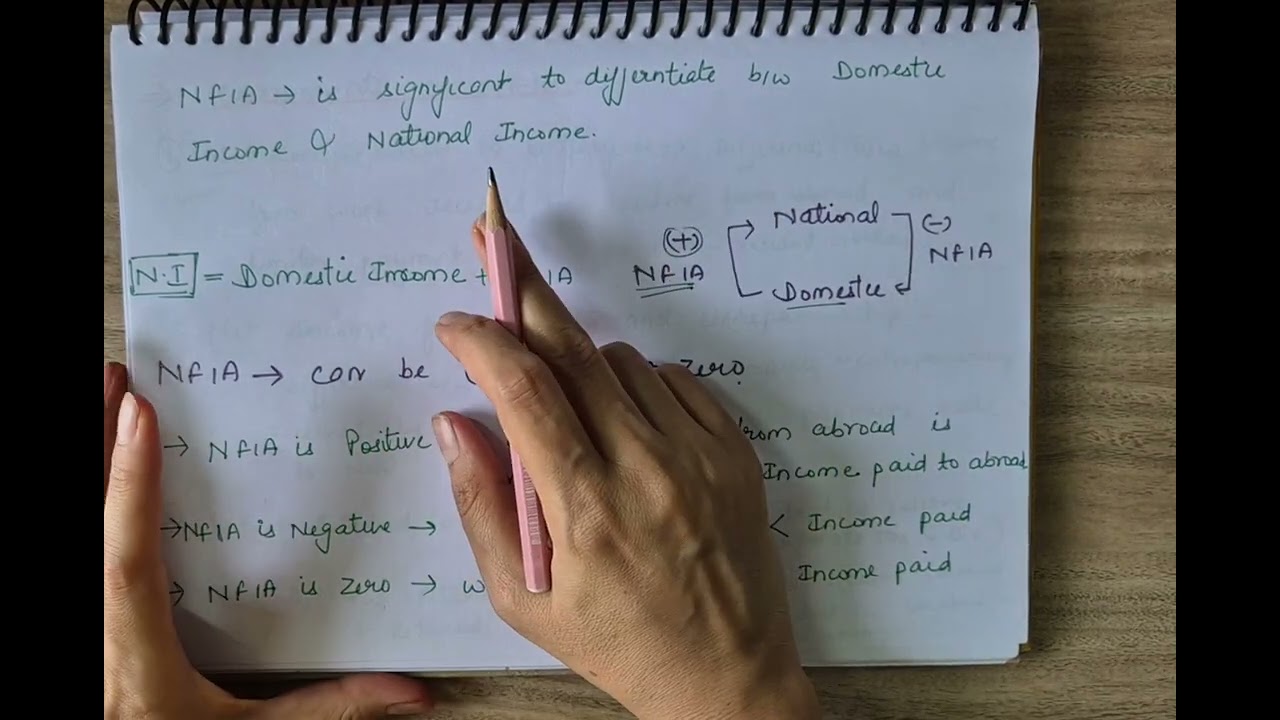 NFIA → is significant to differntiate b/w Domestic
Income & National Income.
N.I = Domestic Income + IA
(+) NFIA National (-) NFIA
Domestic
NFIA → can be zero.
→ NFIA is Positive from abroad is
Income paid to abroad
→ NFIA is Negative → < Income paid
→ NFIA is zero → w Income paid